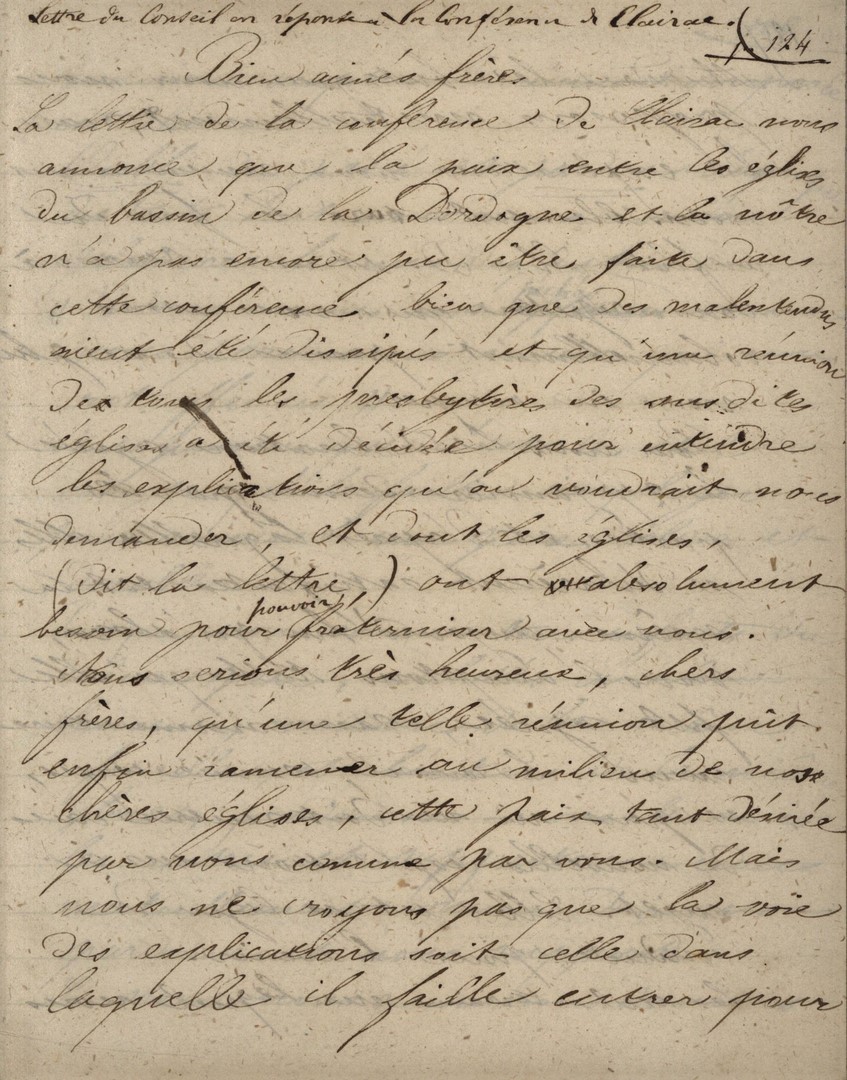 Lettre du Conseil en réponse à la Conférence de Clairac.
124
Bien aimés frères
La lettre de la conférence de Clairac nous
annonce que la paix entre les églises
du bassin de la Dordogne et la nôtre
n'a pas encore pu être faite dans
cette conférence bien que des malentendus
aient été dissipés et qu'une réunion
de tous les presbytères des susdites
églises a été décidée pour entendre
les explications qu'on voudrait nous
demander, et dont les églises,
(dit la lettre,) ont absolument
besoin pour pouvoir fraterniser avec nous.
Nous serions très heureux, chers
frères, qu'une telle réunion pût
enfin ramener au milieu de nos
chères églises, cette paix tant désirée
par nous comme par vous. Mais
nous ne croyons pas que la voie
des explications soit celle dans
laquelle il faille entrer pour